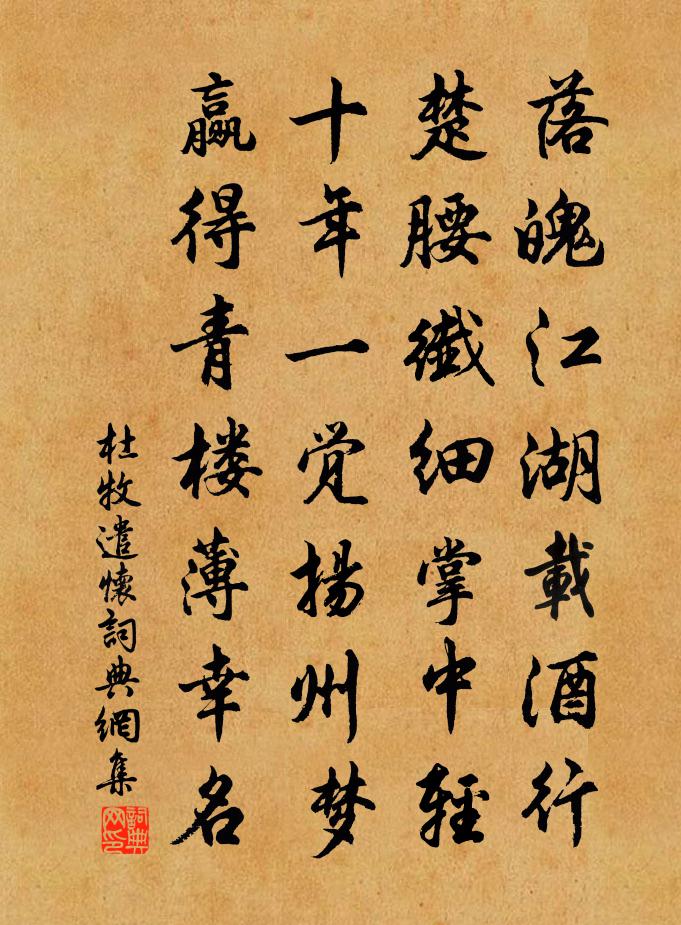 落魄江湖載酒行
楚腰纖細掌中輕
十年一觉揚州梦
贏得青楼薄幸名
杜牧遣懷詞典網集
詞典網印